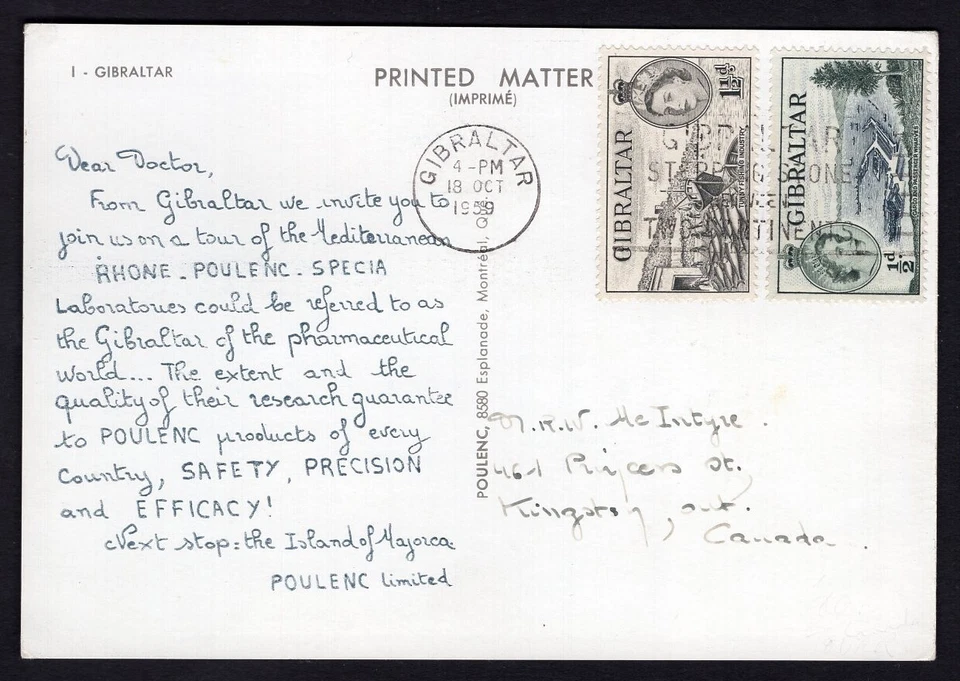 1 - GIBRALTAR
PRINTED MATTER
(IMPRIMÉ)
GIBRALTAR
4 - PM
18 OCT
1959
GIBRALTAR
1½d
TUNNY FISHING INDUSTRY
GIBRALTAR
½d
GIBRALTAR
STEPPING STONE
BETWEEN
TWO CONTINENTS
Dear Doctor,
From Gibraltar we invite you to
join us on a tour of the Mediterranean
RHONE - POULENC - SPECIA
Laboratories could be referred to as
the Gibraltar of the pharmaceutical
world... The extent and the
quality of their research guarantee
to POULENC products of every
Country, SAFETY, PRECISION
and EFFICACY!
Next stop: the Island of Majorca
POULENC limited
POULENC, 8580 Esplanade, Montréal, Qué.
R.W. Mc Intyre.
461 St.
Kingston, ont.
Canada.